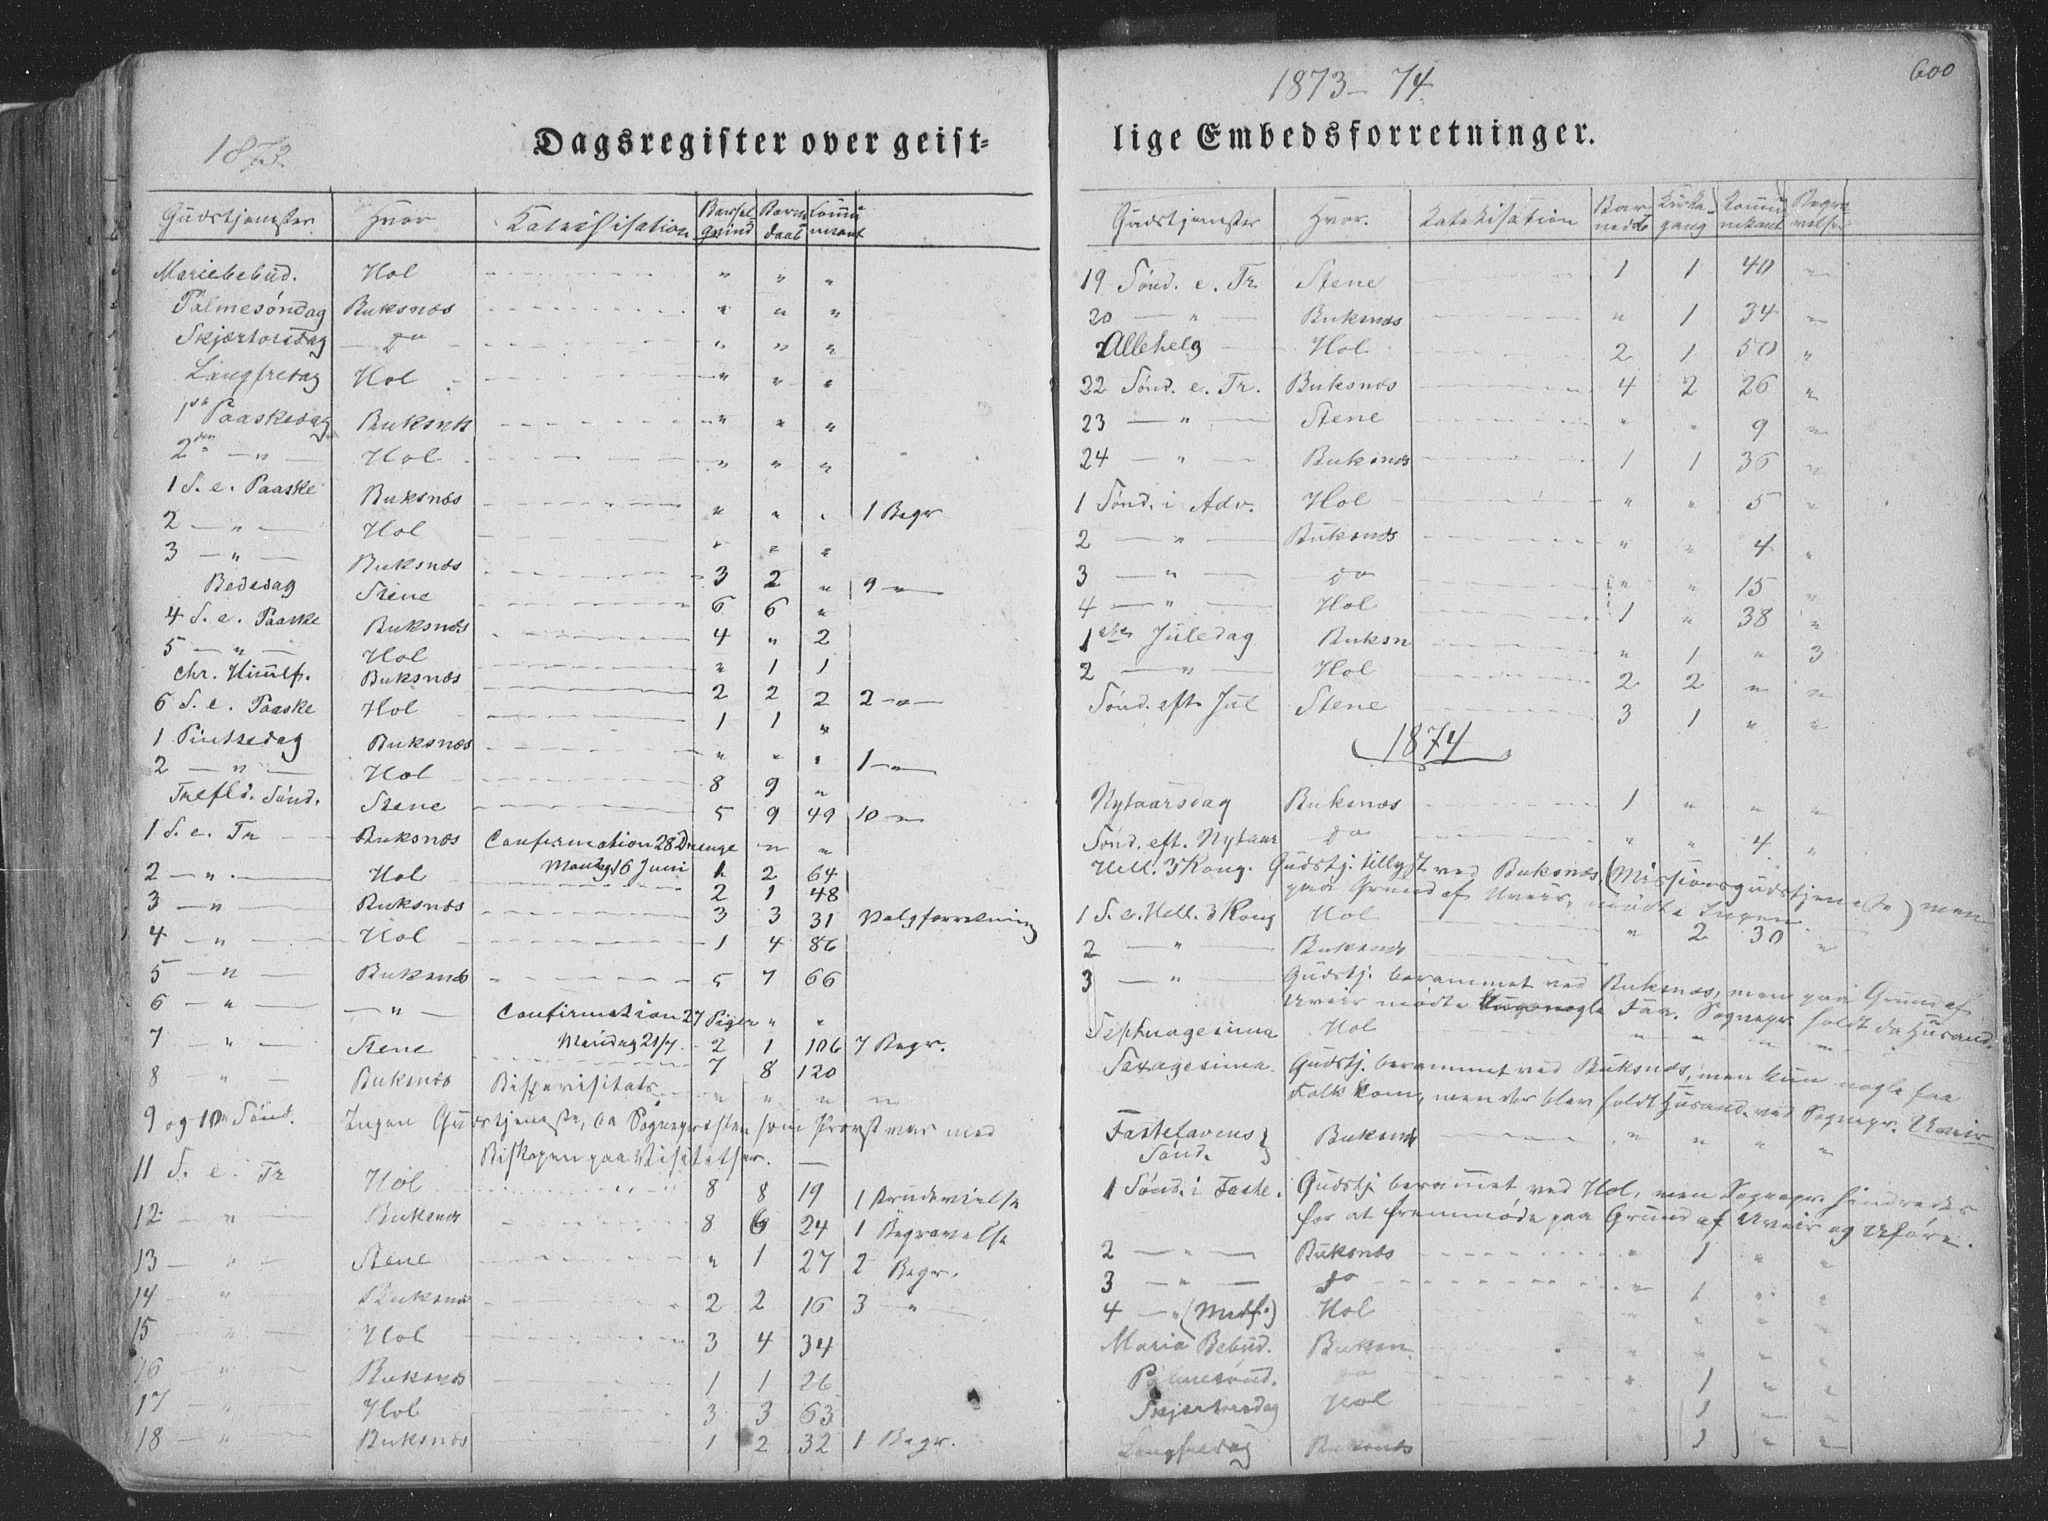 1873
Dagsregister over geist-
Gudstjenester. Hvor Katechisation Barsel qvind Barne daab Commu nicant
Mariebebud. Hol " " "
Palmesøndag Buksnæs " " "
Skjærtorsdag Do " " "
Langfredag Hol " " "
1ste Paaskedag Buksnæs " " "
2den — " — Hol " " "
1 S. e. Paaske Buksnæs " " " 1 Begr
2 — " — Hol " " "
3 — " — Buksnæs 3 2 " 9 — " —
Bededag Stene 6 6 "
4 S. e. Paaske Buksnæs 4 " 2
5 — " — Hol " 1 1
Chr. Himlf. Buksnæs 2 2 2 2 — " —
6 S. e. Paaske Hol 1 1 "
1 Pintsedag Buksnæs " " " 1 — " —
2 — " — Hol 8 9 "
Trefld. Sønd. Stene 5 9 49 10 — " —
1 S. e. Tr Buksnæs Confirmation 28 Drenge " "
Mandag 16 Juni
2 — " — Hol 1 2 64
3 — " — Buksnæs 2 1 48
3 3 31 Valgforretning
4 — " — Hol 1 4 86
5 — " — Buksnæs 5 7 66
6 — " — — " — Confirmation 27 Piger " "
Mandag 21/7.
7 " — Stene 2 1 106 7 Begr.
8 " — Buksnæs Bispevisitats 7 8 120
" " " "
9 og 10 Sønd. Ingen Gudstjeneste, da Sognepresten som Provst var med
Biskopen paa Visitatser. —
11 S. e. Tr Hol 8 8 19 1 Brudevielse
12 — " — Buksnæs 8 6 24 1 Begravelse
13 — " — Stene " 1 27 2 Begr.
14 — " — Buksnæs 2 2 16 3 " —
15 — " — Hol 3 4 34
16 " — Buksnæs 1 1 26
17 " — Hol 3 3 63
18 — " — Buksnæs 1 2 32 1 Begr.
1873 – 74.
600
lige Embedsforretninger.
Gudstjenester Hvor. Katekisation Bar nedb Kirke- gang Kommu nikant Begra velse
19 Sønd. e. Tr. Stene 1 1 40 "
20 — " — Buksnæs " 1 34 "
Allehelg Hol 2 1 50 "
22 Sønd. e. Tr. Buksnæs 4 2 26 "
23 — " — Stene " " 9 "
24 — " — Buksnæs 1 1 36 "
1 Sønd. i Adv. Hol " " 5 "
2 — " — Buksnæs " " 4 "
3 — " — Do " " 15 "
4 — " — Hol 1 " 38 "
1ste Juledag Buksn " 1 " 3
2 — " — Hol 2 2 " "
Sønd. eft Jul Stene 3 1 " "
1874
Nytaarsdag Buksnæs 1 " " "
Sønd. eft. Nytaar Do " " 4 "
Hell. 3 Kong. Gudstj. tillyst ved Buksnæs, (Missionsgudstjeneste) men
paa Grund af Uveir, mødte Ingen
1 S. e. Hell. 3 Kong Hol " 2 30 "
2 — " — Buksnæs
3 — " — Gudstj. berammet ved Buksnæs, men paa Grund af
Uveir mødte nogle Faa. Sognepr. holdt da Husand.
Septuagesima Hol " " " "
Sexagesima. Gudstj. berammet ved Buksnæs, men kun nogle faa
Folk kom, men der blev holdt Husand. ved Sognepr. Uveir
Fastelavens Buksnæs " " " "
Sønd.
1 Sønd. i Faste. Gudstj berammet ved Hol, men Sognepr. hindredes
for at fremmøde paa Grund af Uveir og Uføre.
2 — " — Buksnæs " 1 " "
3 — " — Do " 1 " "
4 — " (Midf.) Hol " " " "
Maria Bebud. Buksn. " " " "
Palmesønd. Do " 1 " "
Skjærtorsdag Hol 1 " "
Langfredag Buksnæs 1 " "